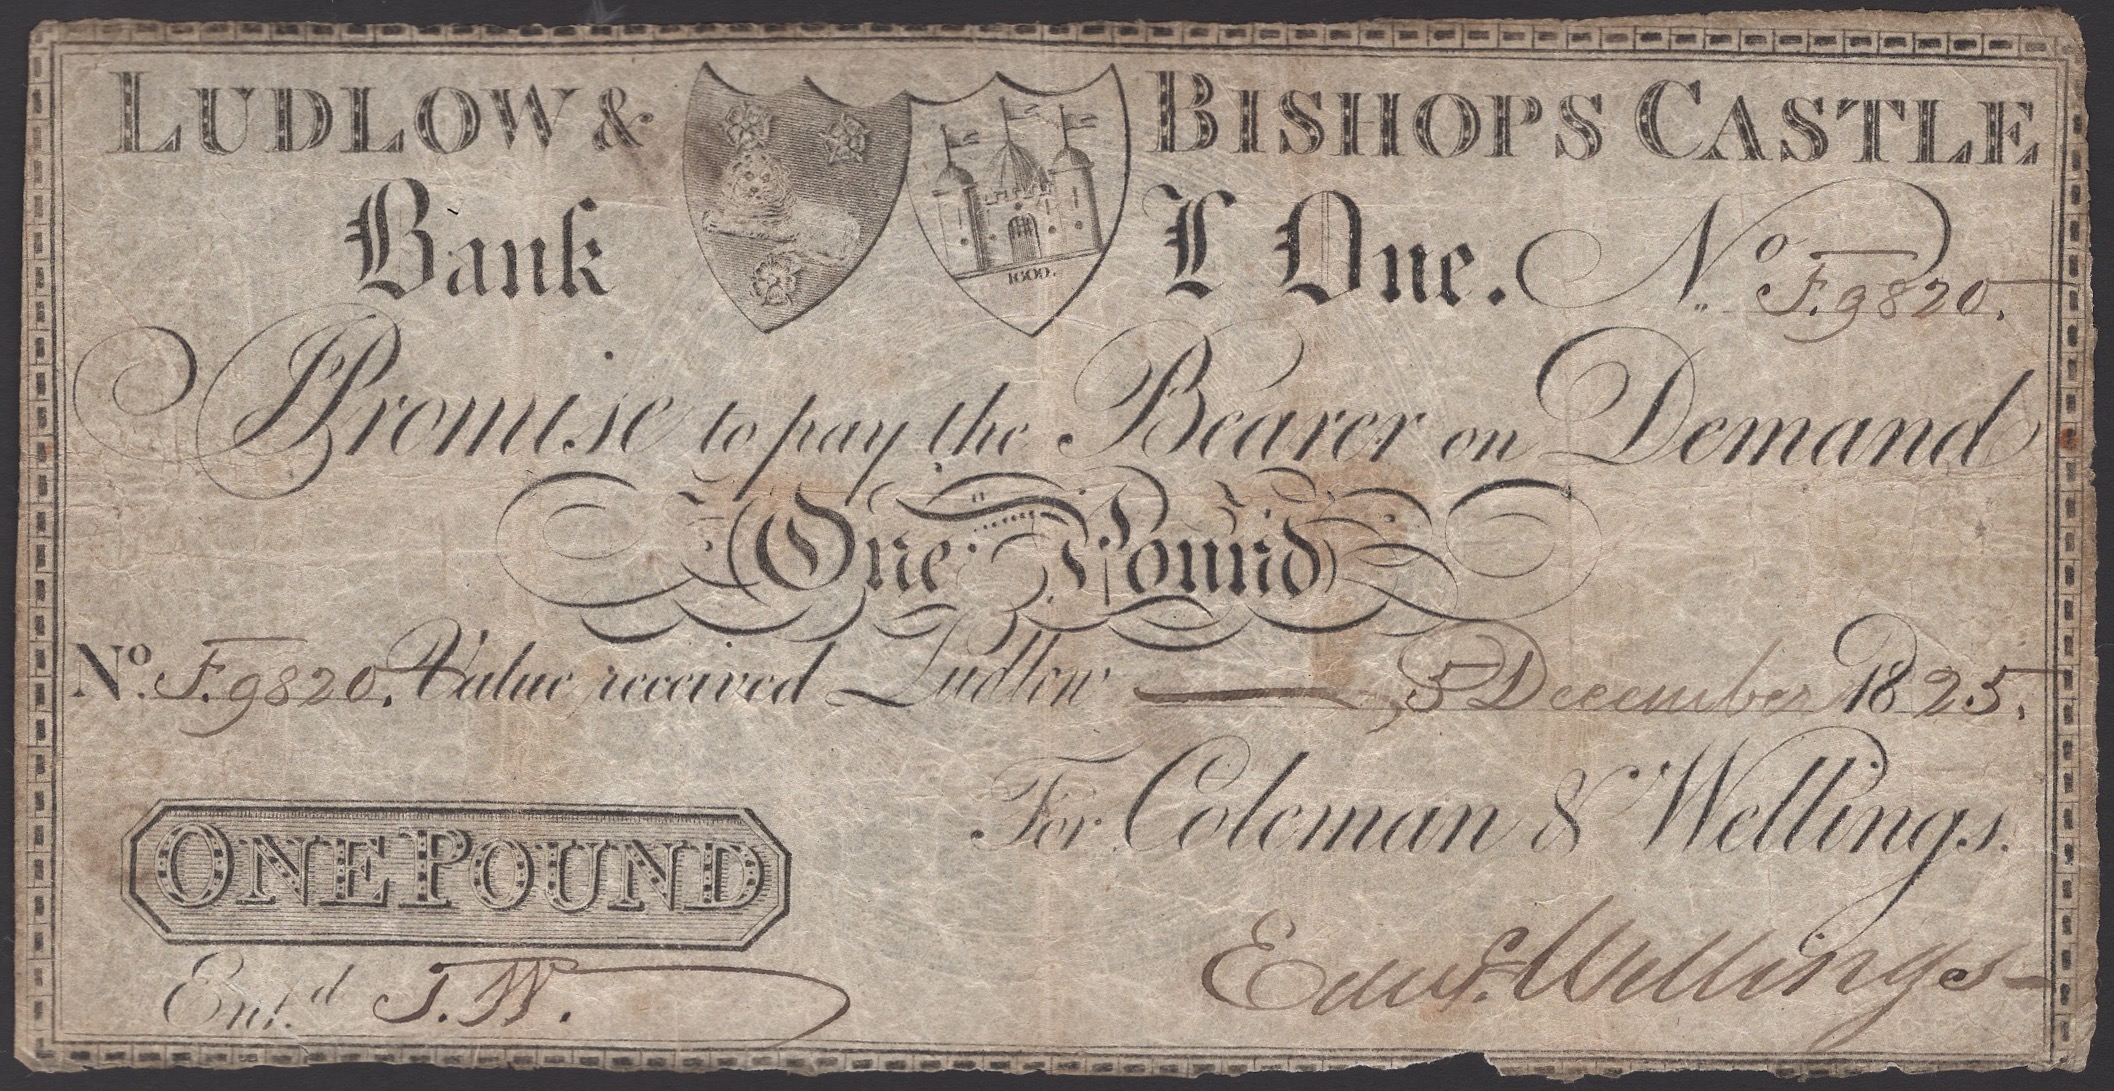 LUDLOW & BISHOPS CASTLE
Bank £ One. No. F.9820.
1609.
I Promise to pay the Bearer on Demand
One Pound
No. F.9820. Value received Ludlow 5 December 1825.
For Coleman & Wellings.
ONE POUND
Entd. J.W. Edwd. Wellings